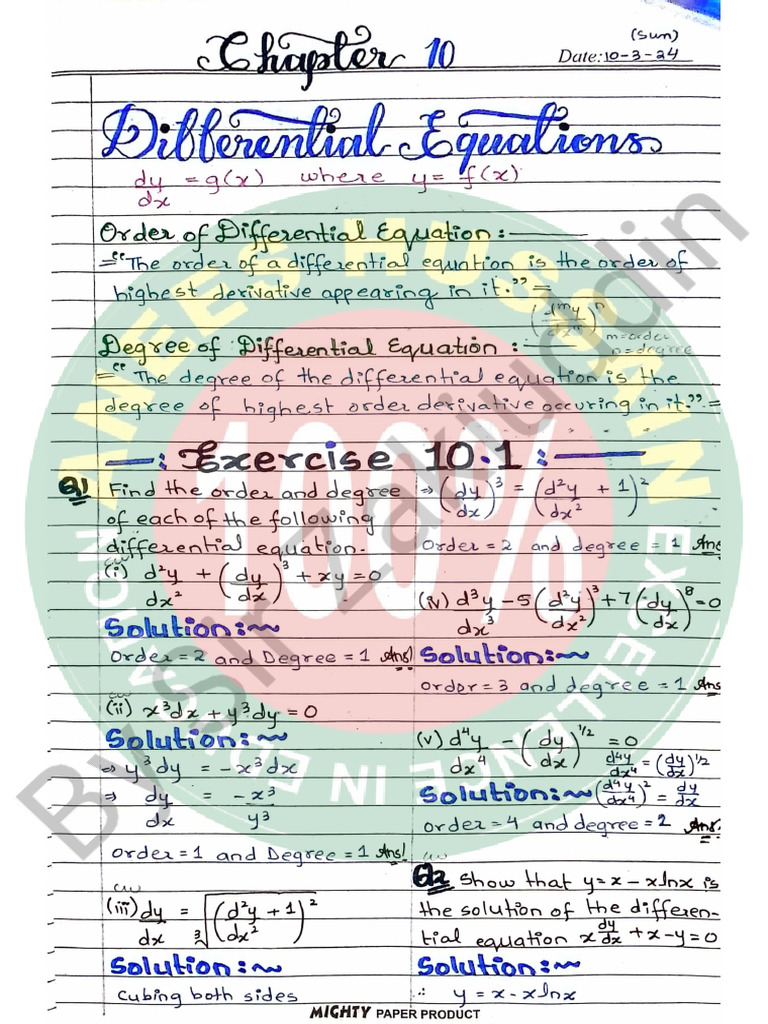 Chapter 10
(Sun)
Date: 10-3-24
Differential Equations
dy/dx = g(x) where y = f(x)
Order of Differential Equation :-
="The order of a differential equation is the order of
highest derivative appearing in it."=
(d^m y/dx^m)^n
m=order
n=degree
Degree of Differential Equation :-
="The degree of the differential equation is the
degree of highest order derivative occuring in it."=
—: Exercise 10.1 :—
Q1 Find the order and degree
of each of the following
differential equation.
(i) d²y/dx² + (dy/dx)³ + xy = 0
Solution:~
Order = 2 and Degree = 1 Ans!
(ii) x³dx + y³dy = 0
Solution:~
⇒ y³dy = -x³dx
⇒ dy/dx = -x³/y³
Order = 1 and Degree = 1 Ans!
(iii) dy/dx = ∛(d²y/dx² + 1)²
Solution:~
Cubing both sides
⇒ (dy/dx)³ = (d²y/dx² + 1)²
Order = 2 and degree = 1 Ans
(iv) d³y/dx³ - 5(d²y/dx²)³ + 7(dy/dx)⁸ = 0
Solution:~
order = 3 and degree = 1 Ans
(v) d⁴y/dx⁴ - (dy/dx)^1/2 = 0
d⁴y/dx⁴ = (dy/dx)^1/2
Solution:~ (d⁴y/dx⁴)² = dy/dx
order = 4 and degree = 2 Ans.
Q2 Show that y = x - xlnx is
the solution of the differen-
tial equation x dy/dx + x - y = 0
Solution:~
∵ y = x - xlnx
MIGHTY PAPER PRODUCT
ANEES HUSSAIN
100%
EXCELLENCE IN EDUCATION
By Sir Zakiuddin